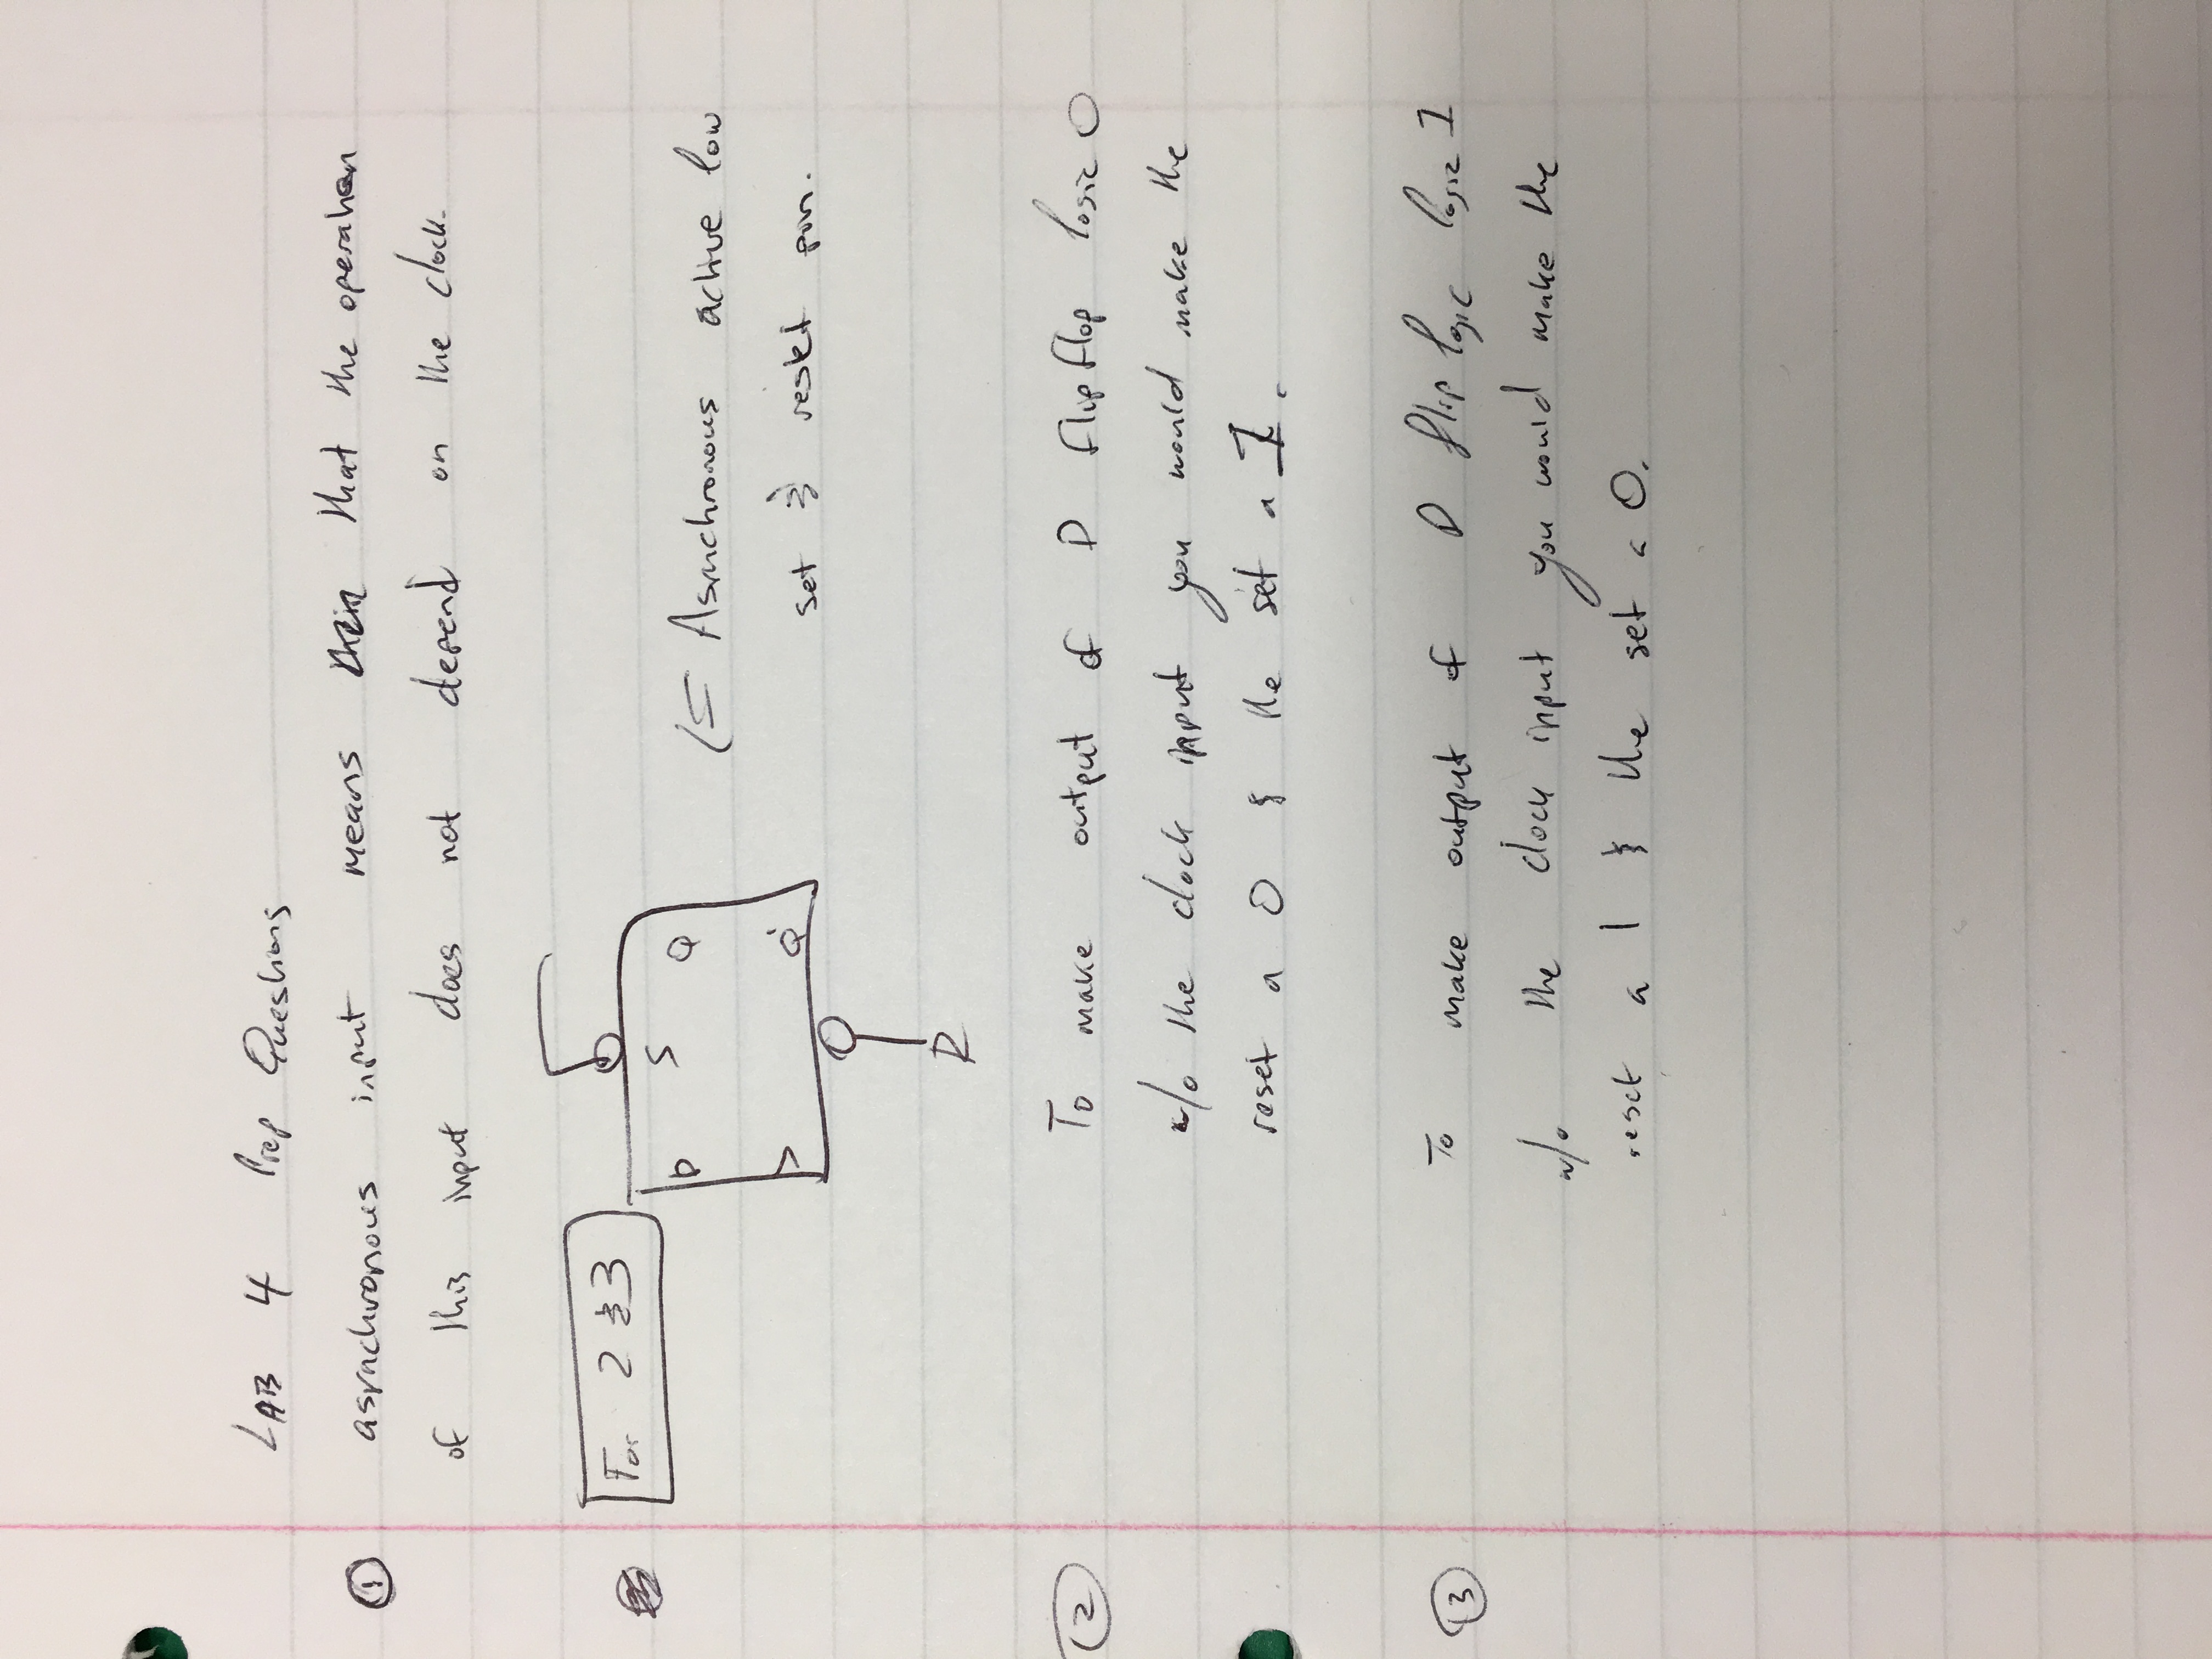 LAB 4 Prep Questions
① asynchronous input means that the operation
of this input does not depend on the clock.
For 2 & 3
S
D Q
Q'
R
(= Asynchronous active low
set & reset pin.
② To make output of D flipflop logic 0
w/o the clock input you would make the
reset a 0 & the set a 1.
③ To make output of D flip logic logic 1
w/o the clock input you would make the
reset a 1 & the set a 0.